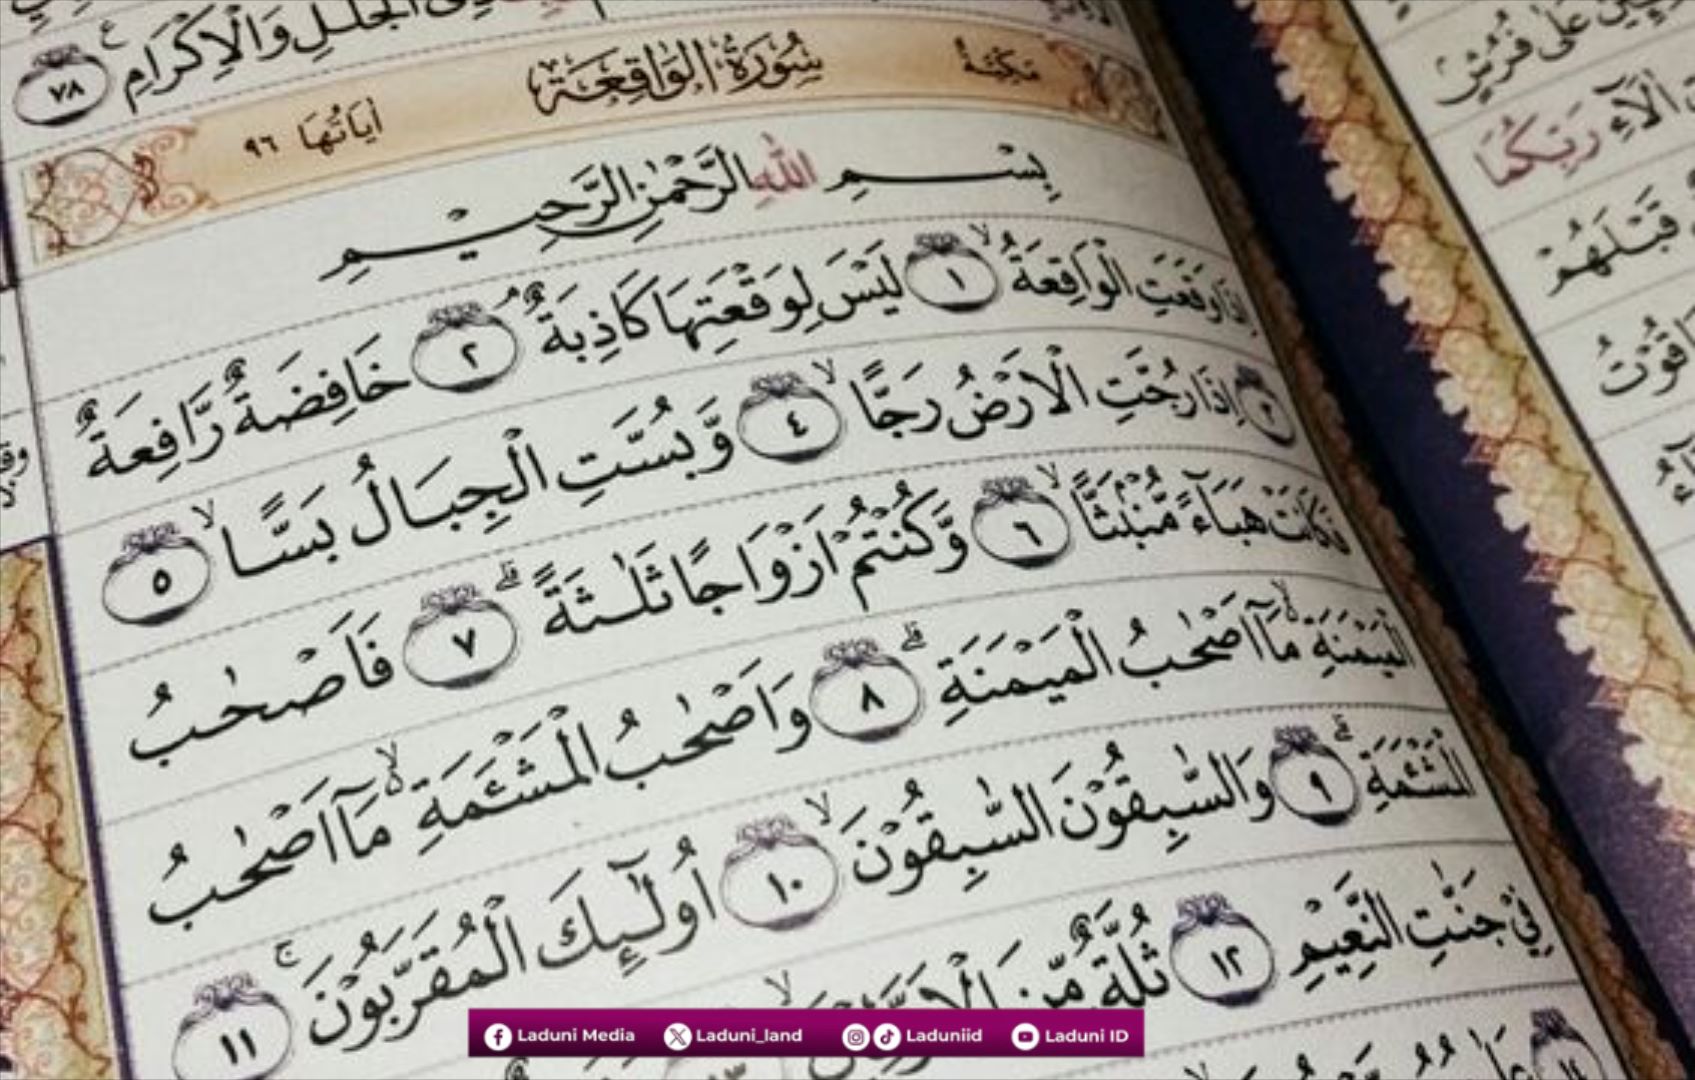 ذِى الْجَلٰلِ وَالْاِكْرَامِ ٧٨
مَكِّيَّةٌ سُوْرَةُ الْوَاقِعَةِ اٰيَاتُهَا ٩٦
بِسْمِ اللّٰهِ الرَّحْمٰنِ الرَّحِيْمِ
اِذَا وَقَعَتِ الْوَاقِعَةُۙ ١ لَيْسَ لِوَقْعَتِهَا كَاذِبَةٌۘ ٢ خَافِضَةٌ رَّافِعَةٌ
٣ اِذَا رُجَّتِ الْاَرْضُ رَجًّاۙ ٤ وَّبُسَّتِ الْجِبَالُ بَسًّاۙ ٥
فَكَانَتْ هَبَاۤءً مُّنْۢبَثًّاۙ ٦ وَّكُنْتُمْ اَزْوَاجًا ثَلٰثَةًۗ ٧ فَاَصْحٰبُ
الْمَيْمَنَةِ ەۙ مَآ اَصْحٰبُ الْمَيْمَنَةِۗ ٨ وَاَصْحٰبُ الْمَشْـَٔمَةِ ەۙ مَآ اَصْحٰبُ
الْمَشْـَٔمَةِۗ ٩ وَالسّٰبِقُوْنَ السّٰبِقُوْنَۙ ١٠ اُولٰۤىِٕكَ الْمُقَرَّبُوْنَۚ ١١
فِيْ جَنّٰتِ النَّعِيْمِ ١٢ ثُلَّةٌ مِّنَ
١٤
عَلٰى
رَبِّكُمَا
قَبْلَهُمْ
Laduni Media Laduni_land Laduniid Laduni ID